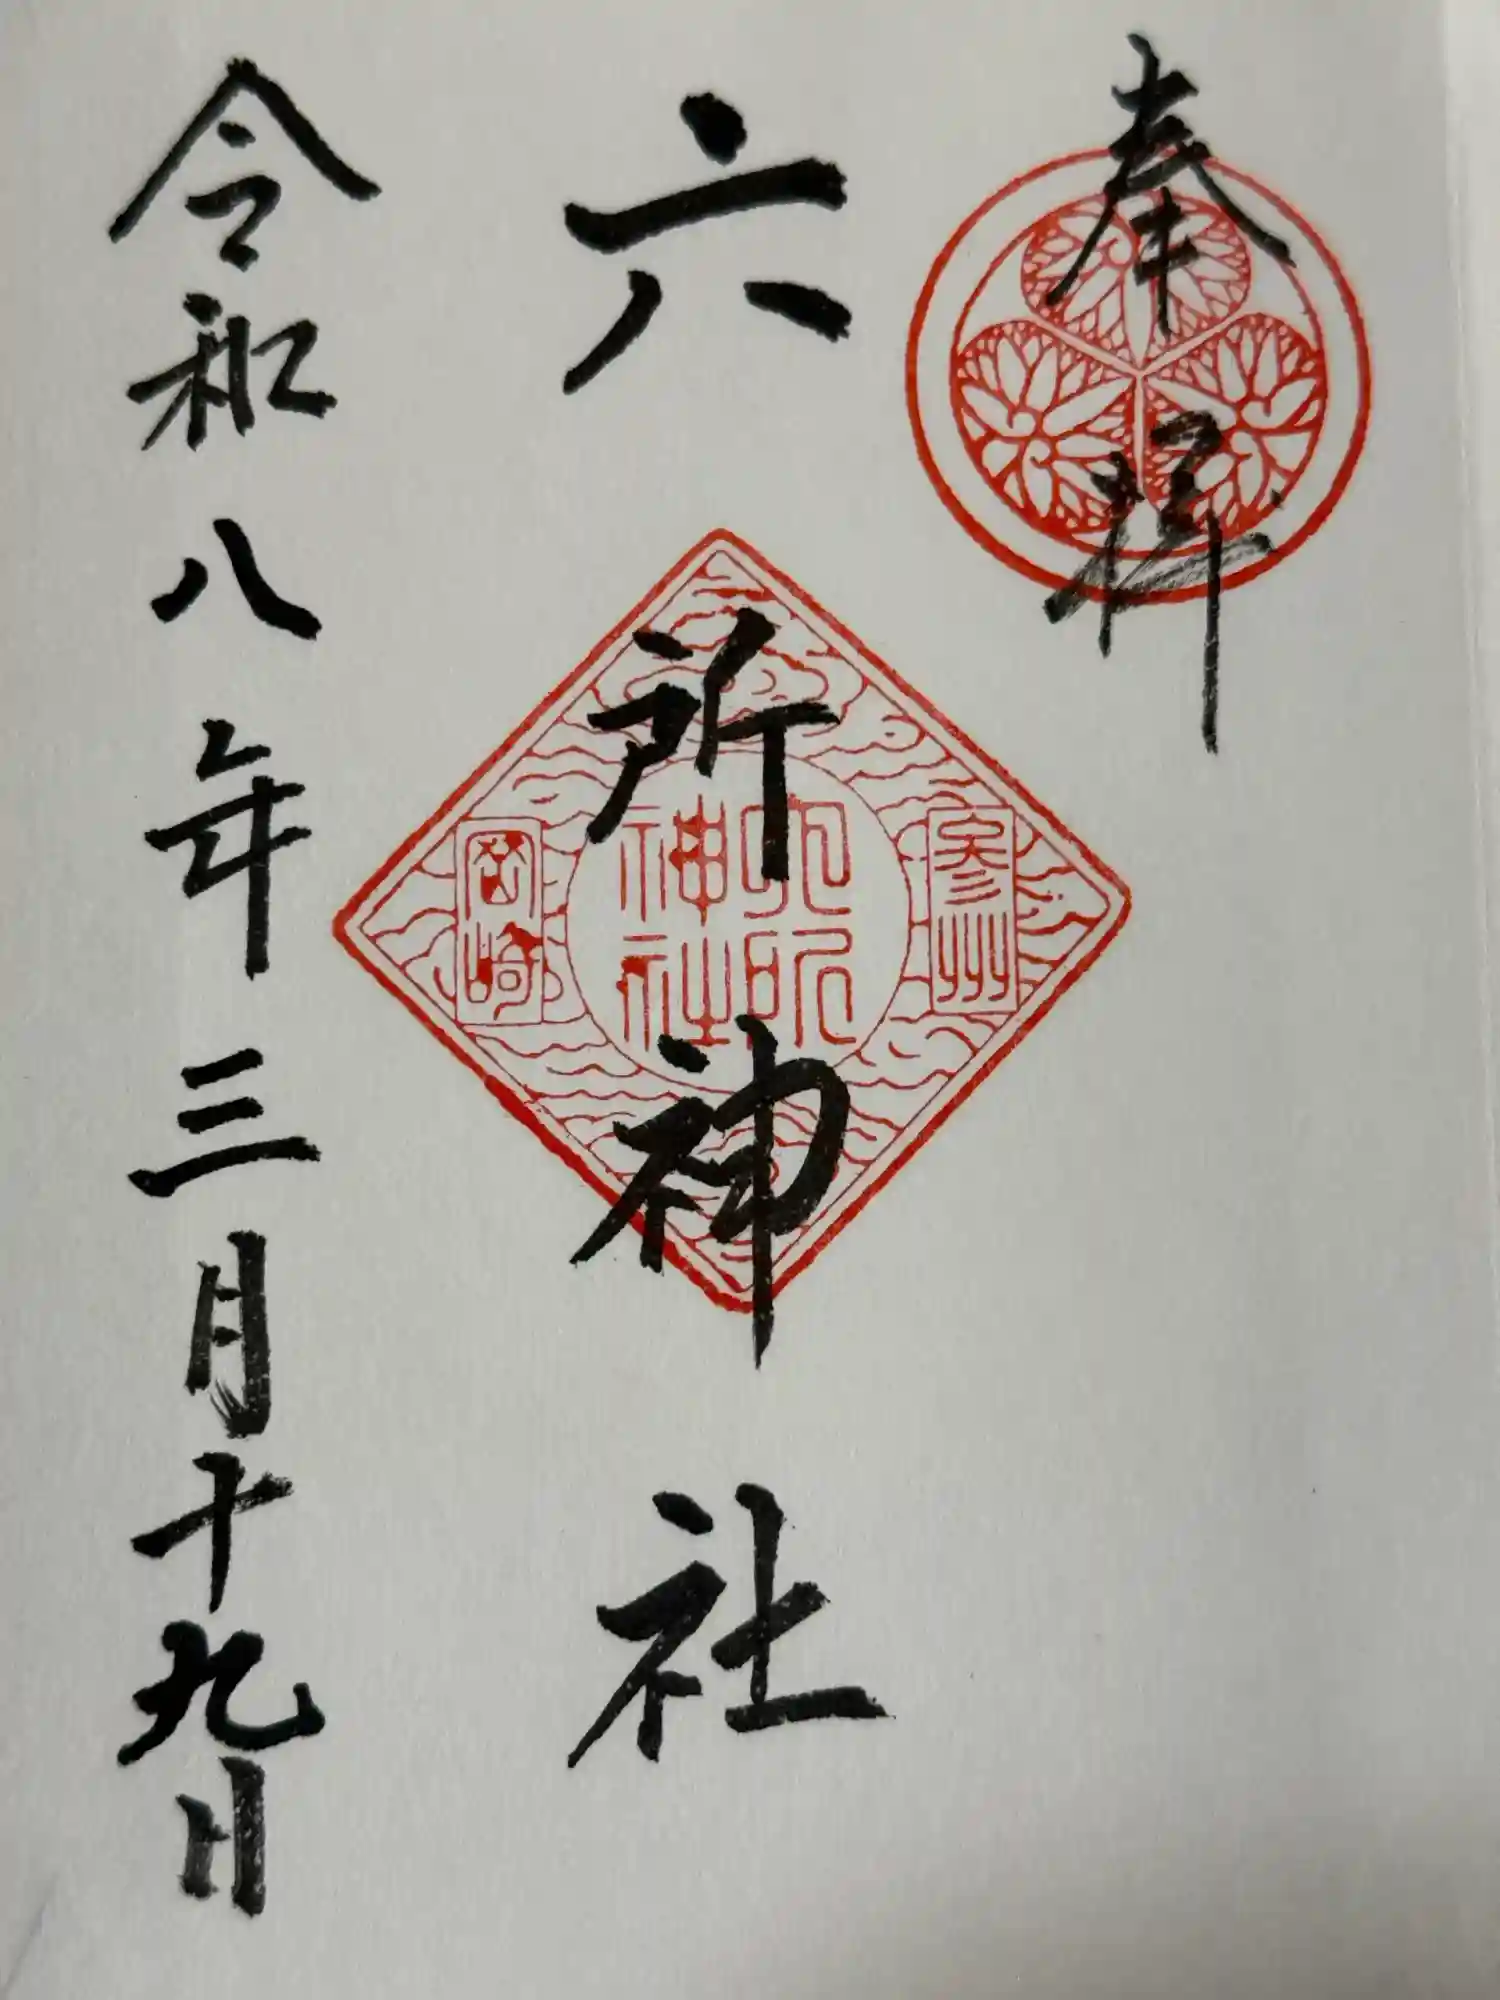 奉拝
参州
六所神社
六所
神社
岡崎
令和八年三月十九日